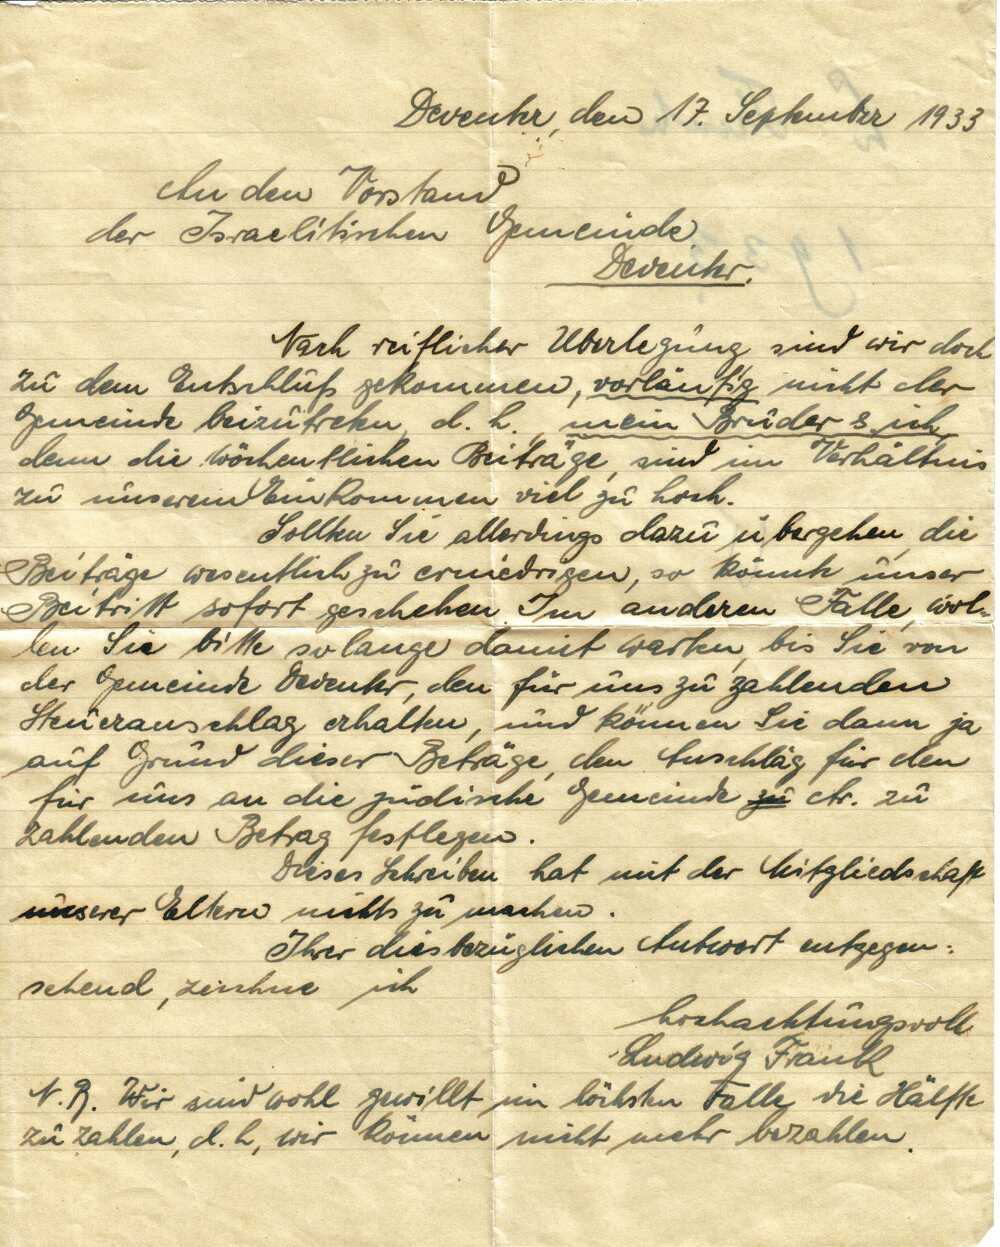 Deventer, den 17. September 1933
An den Vorstand
der Israelitischen Gemeinde
Deventer.
Nach reiflicher Uberlegung sind wir doch
zu dem Entschluß gekommen, vorläufig nicht der
Gemeinde beizutreten, d. h. mein Bruder & ich,
denn die wöchentlichen Beiträge, sind im Verhältnis
zu unserem Einkommen viel zu hoch.
Sollten Sie allerdings dazu übergehen, die
Beiträge wesentlich zu erniedrigen, so könnte unser
Beitritt sofort geschehen. Im anderen Falle, wol-
len Sie bitte solange damit warten, bis Sie von
der Gemeinde Deventer, den für uns zu zahlenden
Steueranschlag erhalten, und können Sie dann ja
auf Grund dieser Beträge, den Anschlag für den
für uns an die jüdische Gemeinde zu etr. zu
zahlenden Betrag festlegen.
Dieses Schreiben hat mit der Mitgliedschaft
unserer Eltern nichts zu machen.
Ihrer diesbezüglichen Antwort entgegen-
sehend, zeichne ich
hochachtungsvoll
Ludwig Frank
N. B. Wir sind wohl gewillt im höchsten Falle die Hälfte
zu zahlen, d. h, wir können nicht mehr bezahlen.